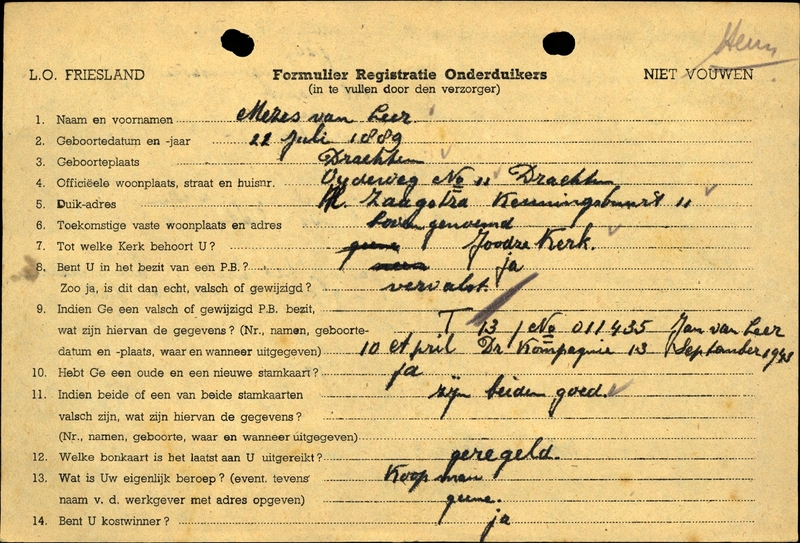 Henn
L.O. FRIESLAND Formulier Registratie Onderduikers NIET VOUWEN
(in te vullen door den verzorger)
1. Naam en voornamen Mezes van Leer
2. Geboortedatum en -jaar 22 Juli 1889
3. Geboorteplaats Drachten
4. Officiëele woonplaats, straat en huisnr. No 11 Drachten
5. Duik-adres Zaagstra 11
6. Toekomstige vaste woonplaats en adres bovengenoemd
7. Tot welke Kerk behoort U? geene Joodse Kerk.
8. Bent U in het bezit van een P.B.? neen ja
Zoo ja, is dit dan echt, valsch of gewijzigd? vervalst.
9. Indien Ge een valsch of gewijzigd P.B. bezit,
wat zijn hiervan de gegevens? (Nr., namen, geboorte- T 13 / No 011435 Jan van Leer
datum en -plaats, waar en wanneer uitgegeven) 10 April Dr. Kompagnie 13 September 1943
10. Hebt Ge een oude en een nieuwe stamkaart? ja
11. Indien beide of een van beide stamkaarten zijn beiden goed.
valsch zijn, wat zijn hiervan de gegevens?
(Nr., namen, geboorte, waar en wanneer uitgegeven)
12. Welke bonkaart is het laatst aan U uitgereikt? geregeld.
13. Wat is Uw eigenlijk beroep? (event. tevens Koopman
naam v. d. werkgever met adres opgeven) geene.
14. Bent U kostwinner? ja